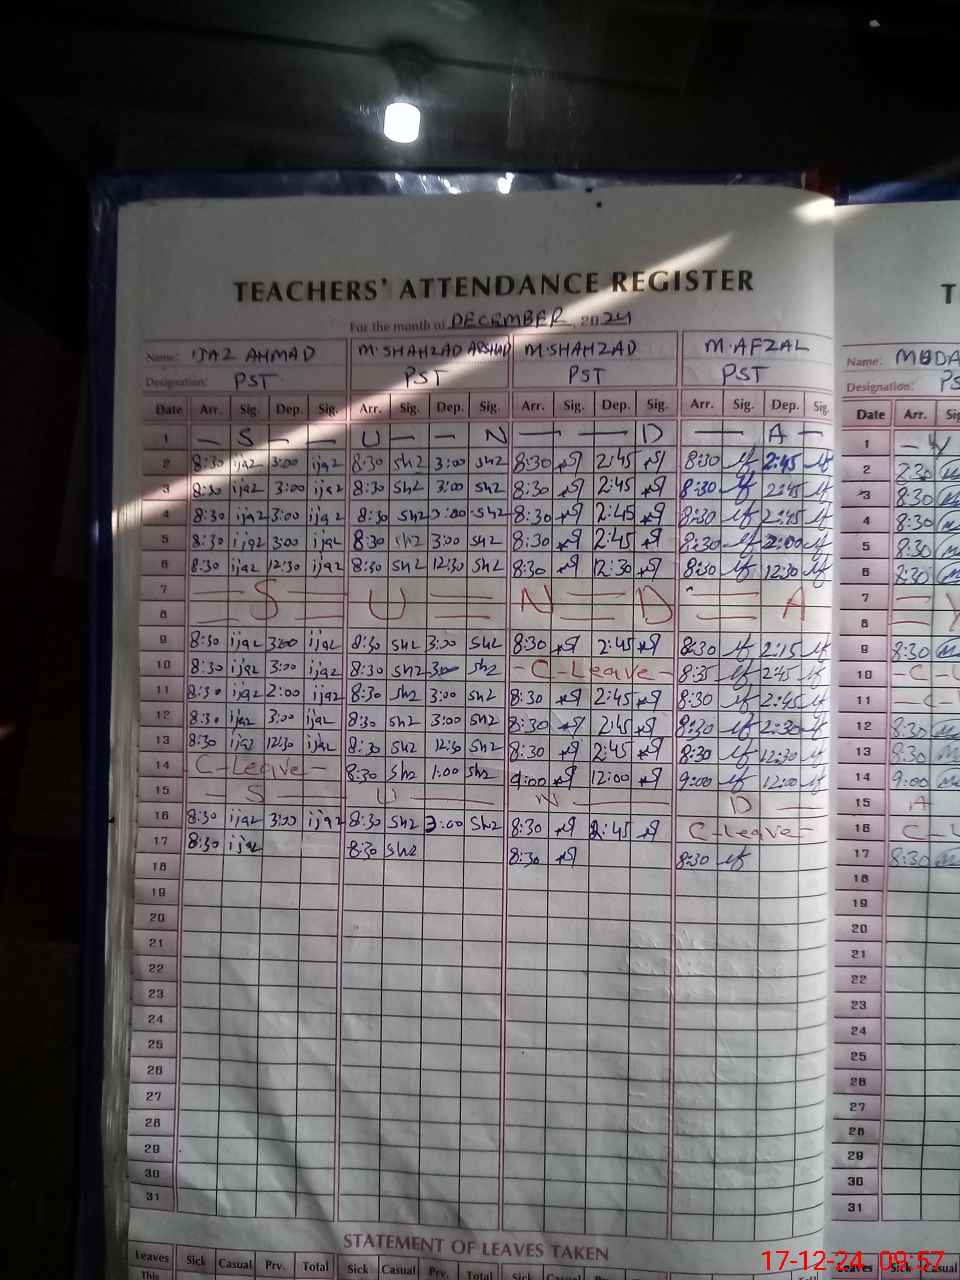 TEACHERS' ATTENDANCE REGISTER
For the month of DECEMBER, 2024
Name: IJAZ AHMAD M.SHAHZAD ARSHAD M.SHAHZAD M.AFZAL
Designation: PST PST PST PST
Date Arr. Sig. Dep. Sig. Arr. Sig. Dep. Sig. Arr. Sig. Dep. Sig. Arr. Sig. Dep. Sig.
1 — S — — U — — N — — D — A —
2 8:30 ijaz 3:00 ijaz 8:30 shz 3:00 shz 8:30 2:45 8:30 2:45
3 8:30 ijaz 3:00 ijaz 8:30 shz 3:00 shz 8:30 2:45 8:30 2:45
4 8:30 ijaz 3:00 ijaz 8:30 shz 3:00 shz 8:30 2:45 8:30 2:45
5 8:30 ijaz 3:00 ijaz 8:30 shz 3:00 shz 8:30 2:45 8:30 2:00
6 8:30 ijaz 12:30 ijaz 8:30 shz 12:30 shz 8:30 12:30 8:30 12:30
7 S U N D A
8
9 8:30 ijaz 3:00 ijaz 8:30 shz 3:00 shz 8:30 2:45 8:30 2:15
10 8:30 ijaz 3:00 ijaz 8:30 shz 3:00 shz -C-Leave- 8:35 2:45
11 8:30 ijaz 2:00 ijaz 8:30 shz 3:00 shz 8:30 2:45 8:30 2:45
12 8:30 ijaz 3:00 ijaz 8:30 shz 3:00 shz 8:30 2:45 8:30 2:30
13 8:30 ijaz 12:30 ijaz 8:30 shz 12:30 shz 8:30 2:45 8:30 12:30
14 C-Leave- 8:30 shz 1:00 shz 9:00 12:00 9:00 12:00
15 — S — U — N — D —
16 8:30 ijaz 3:00 ijaz 8:30 shz 3:00 shz 8:30 2:45 C-Leave-
17 8:30 ijaz 8:30 shz 8:30 8:30
18
19
20
21
22
23
24
25
26
27
28
29
30
31
STATEMENT OF LEAVES TAKEN
Leaves Sick Casual Prv. Total Sick Casual Prv. Total Sick Casual
This
Name:
Designation: PS
Date Arr.
1 — Y
2 8:30
3 8:30
4 8:30
5 8:30
6 8:30
7 — Y
8
9 8:30
10 -C-L
11 -C-L
12 8:30
13 8:30
14 9:00
15 A
16 C-L
17 8:30
18
19
20
21
22
23
24
25
26
27
28
29
30
31
Leaves Sick Casual
17-12-24 09:57